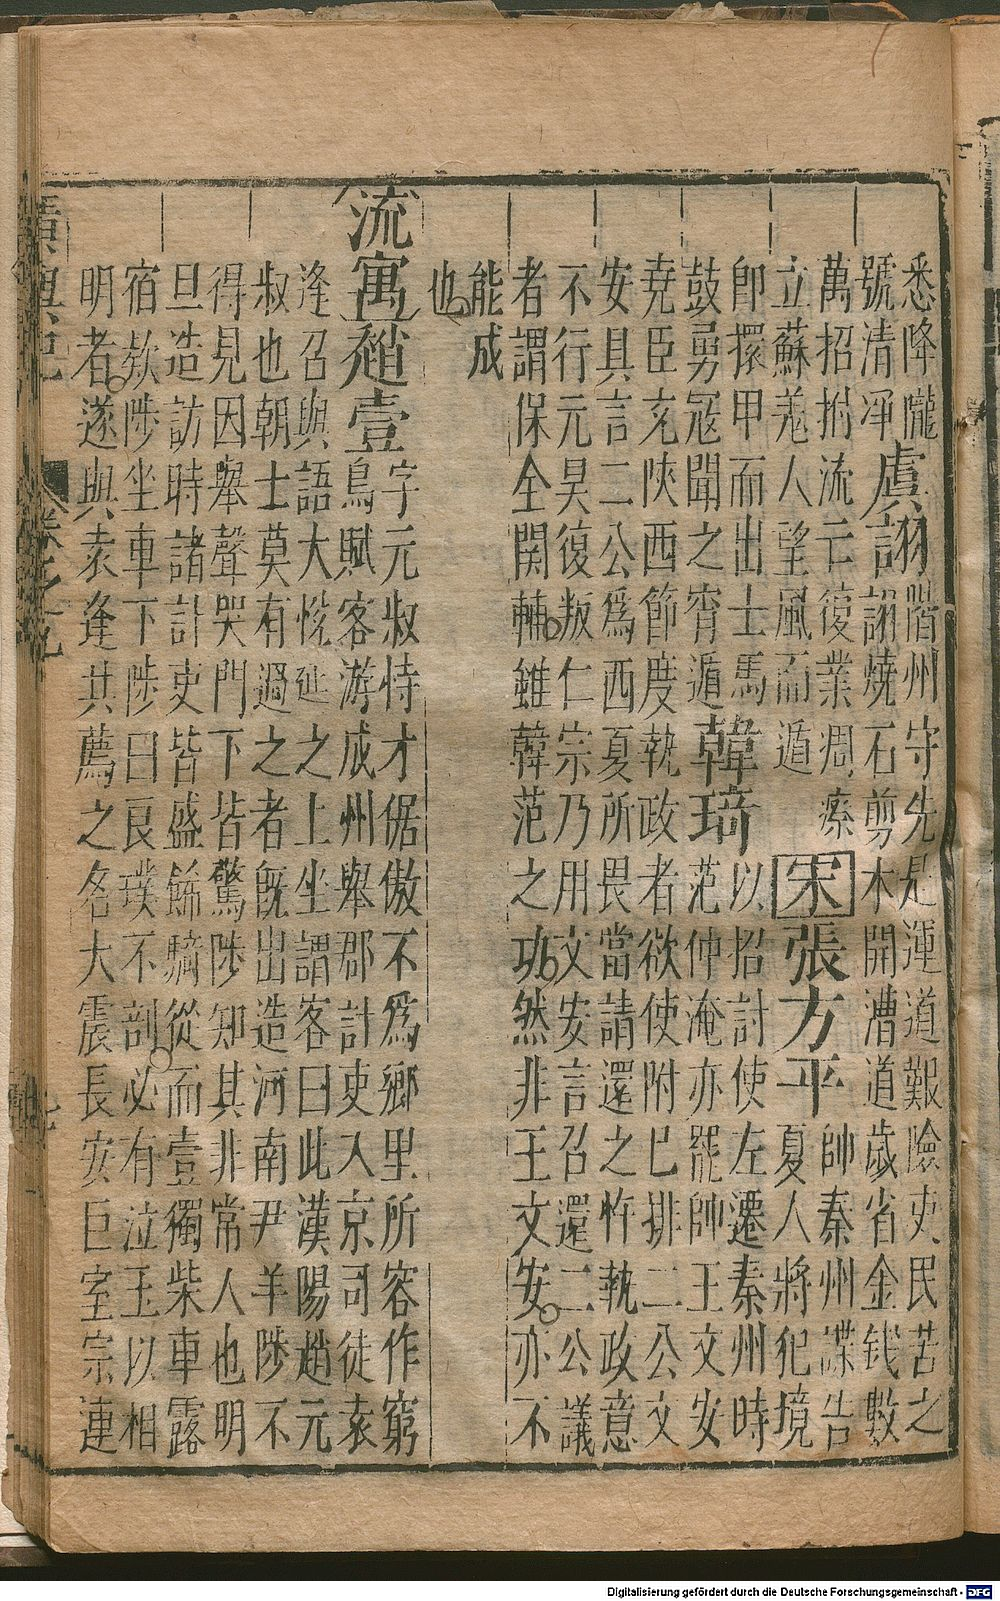 悉降隴
號清凈虞詡階州守先是運道艱險吏民苦之
詡燒石剪木開漕道歲省金錢數
萬招拊流亡復業凋瘵宋張方平帥秦州諜告
夏人將犯境
立蘇羗人望風而遁
卽擐甲而出士馬韓琦以招討使左遷秦州時
范仲淹亦罷帥王文安
鼓勇寇聞之宵遁
堯臣充陜西節度執政者欲使附已排二公文
安具言二公爲西夏所畏當請還之忤執政意
不行元昊復叛仁宗乃用文安言召還二公議
者謂保全関輔雖韓范之功然非王文安亦不
能成
也
流寓趙壹字元叔恃才倨傲不爲鄉里所容作窮
鳥賦客游成州舉郡計吏入京司徒袁
逄召與語大恱延之上坐謂客曰此漢陽趙元
叔也朝士莫有過之者旣出造河南尹羊陟不
得見因舉聲哭門下皆驚陟知其非常人也明
旦造訪時諸計吏皆盛餙騎從而壹獨柴車露
宿欸陟坐車下陟曰良璞不剖必有泣玉以相
明者遂與袁逄共薦之名大震長安巨室宗連
廣輿記
卷之九
Digitalisierung gefördert durch die Deutsche Forschungsgemeinschaft - DFG